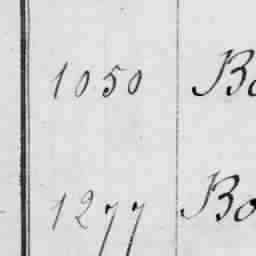 1050 Bo
1277 Bo